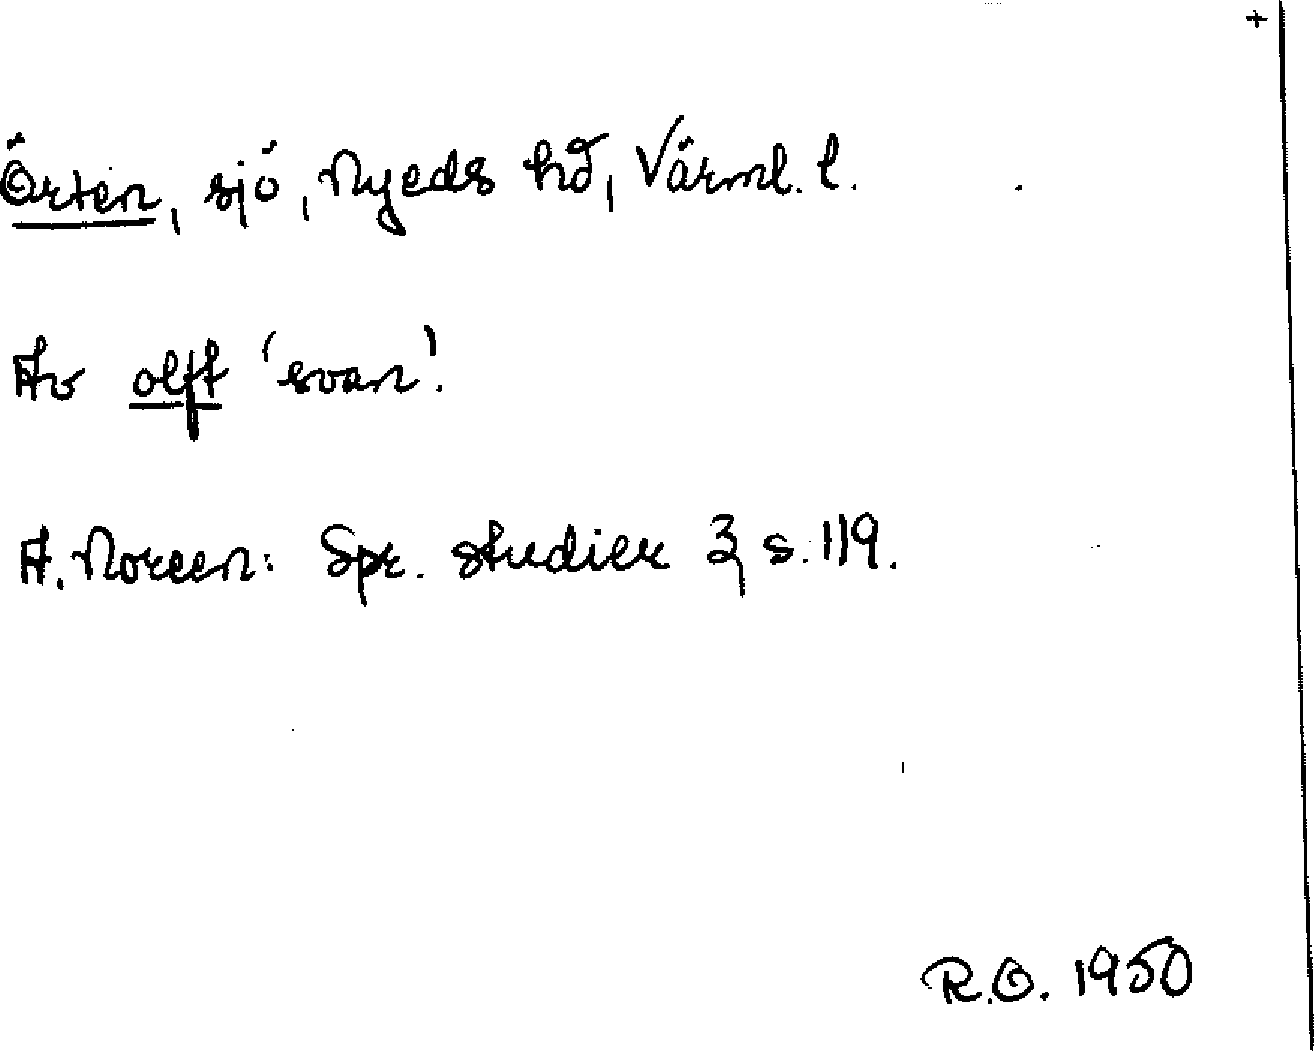 +
Örten, sjö, Nyeds hd, Värml. l.
Av olft 'svan'.
A. Noreen: Spr. studier 3, s. 119.
R.O. 1950